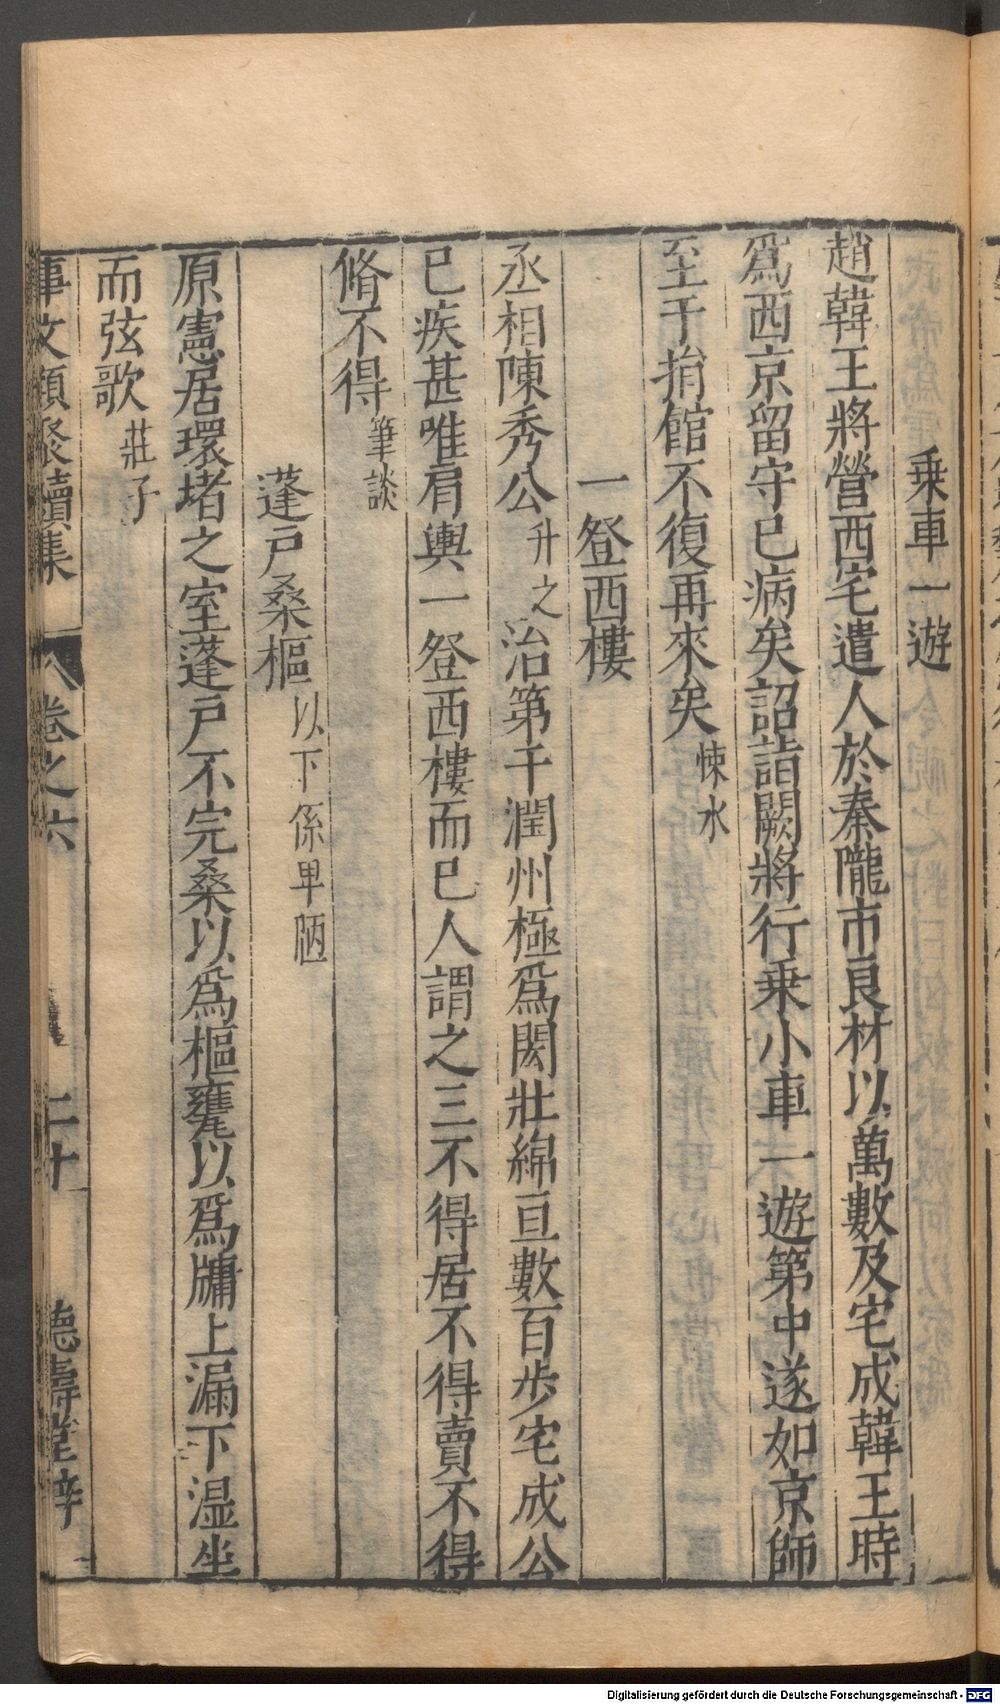 乘車一遊
趙韓王將營西宅遣人於秦隴市良材以萬數及宅成韓王時
爲西京留守已病矣詔詣闕將行乗小車一遊第中遂如京師
至于捐館不復再來矣 悚水
一登西樓
丞相陳秀公 升之 治第于潤州極爲閎壯綿亘數百步宅成公
已疾甚唯肩輿一登西樓而已人謂之三不得居不得賣不得
脩不得 筆談
蓬戸桑樞 以下係卑陋
原憲居環堵之室蓬戸不完桑以爲樞甕以爲牖上漏下湿坐
而弦歌 莊子
事文類聚續集 卷之六 二十 德壽堂梓
Digitalisierung gefördert durch die Deutsche Forschungsgemeinschaft - DFG